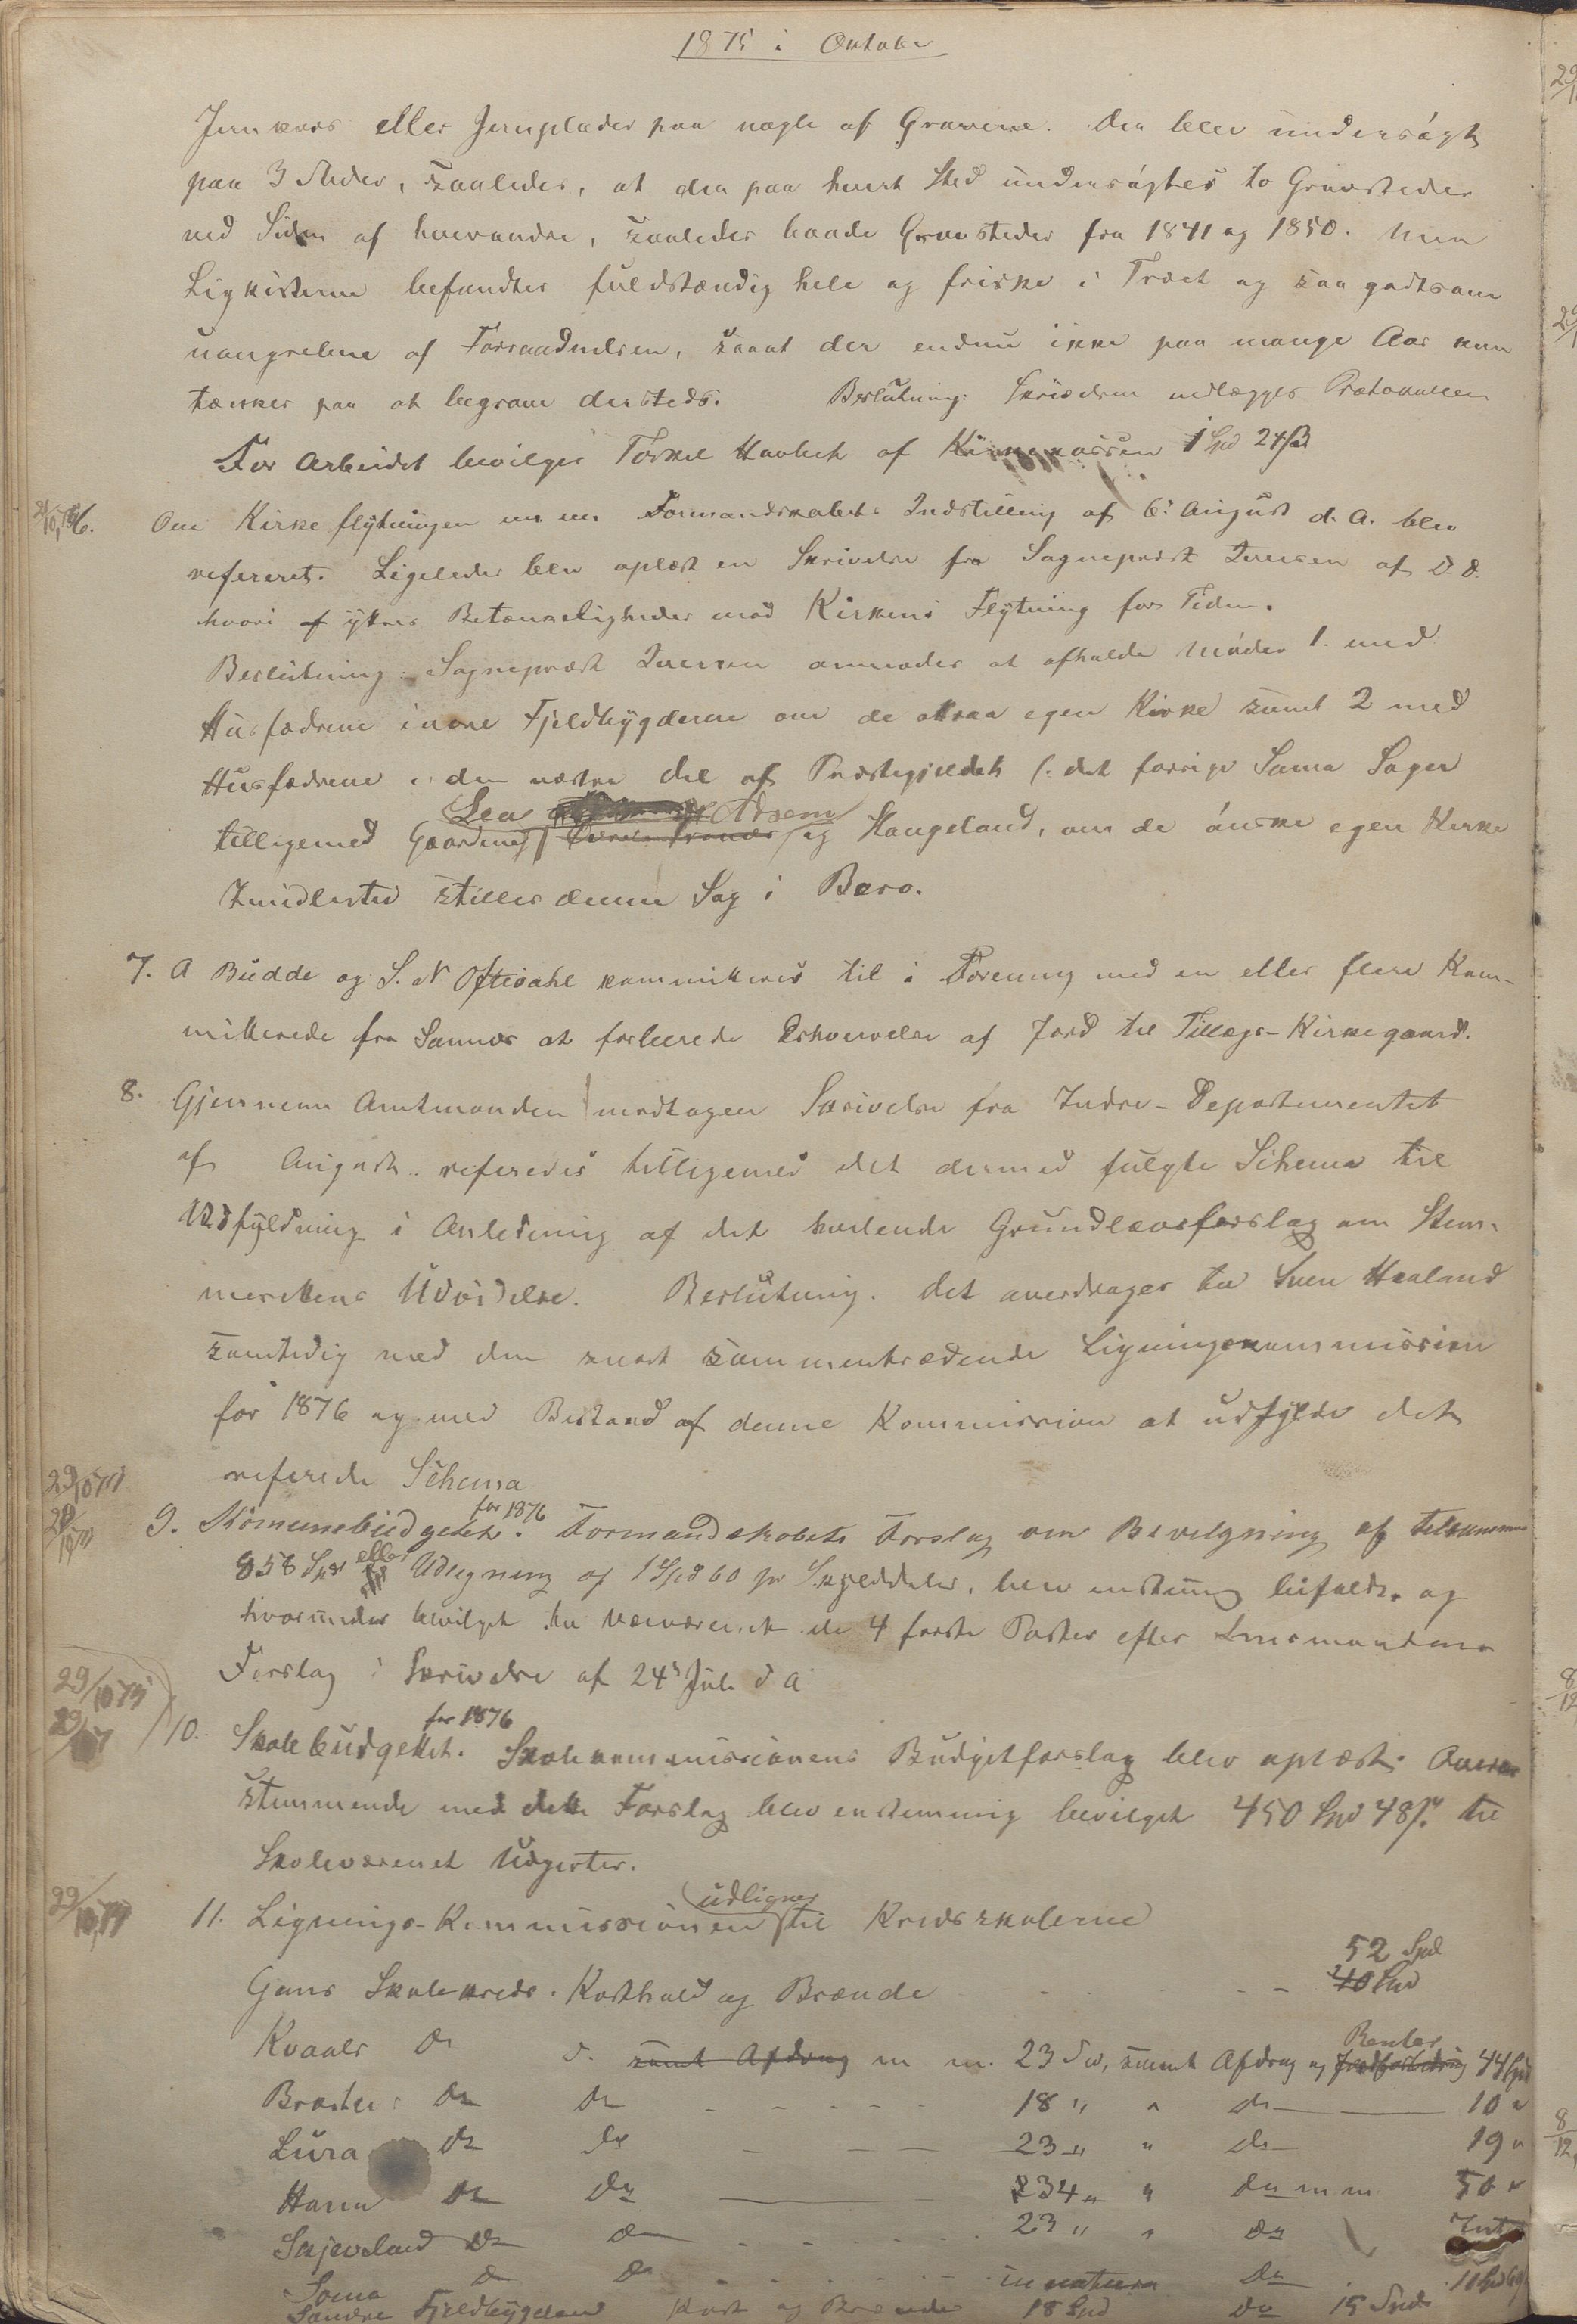 1875 i Oktober
Jernkors eller Jernplader paa nogle af Gravene. Der blev undersøgt
paa 3 Steder, saaledes, at der paa hvert Sted undersøgtes to Gravsteder
ved Siden af hverandre, saaledes baade Gravsteder fra 1841 og 1850. Men
Ligkisterne befandtes fuldstændig hele og friske i Træet og saa godtsom
uangrebne af Forraadnelsen, saaat der endnu ikke paa mange Aar kan
tænkes paa at begrave dersteds. Beslutning: Skrivelsen vedlægges Protokollen
For Arbeidet bevilges Torkel Haabeth af Kirkekassen 1 Spd 24 ß
6. Om Kirkeflytningen m m Formandskabets Indstilling af 6. August d. A. blev
refereret. Ligeledes blev oplæst en Skrivelse fra Sognepræst Iversen af D. D.
hvori yttres Betænkeligheder mod Kirkens Flytning for Tiden.
Beslutning. Sognepræst Iversen anmodes at afholde Møder 1. med
Husfædrene i Fjeldbygderne om de attraa egen Kirke samt 2 med
Husfædrene i den vestre Del af Præstegjeldet (: det forrige Soma Sogn
Lea Adsem
tilligemed Gaardene og Haugeland, om de ønske egen Kirke
Imidlertid stilles denne Sag i Bero.
7. A Budde og S. N Oftedahl kommitteres til i Forening med en eller flere Kom-
mitterede fra Sannæs at forberede Erhvervelse af Jord til Tillægs-Kirkegaard.
8. Gjennem Amtmanden modtagen Skrivelse fra Indre-Departementet
af August refereredes tilligemed det dermed fulgte Schema til
Udfyldning i Anledning af det hvilende Grundlovsforslag om Stem-
merettens Udvidelse. Beslutning. Det overdrages til Sven Haaland
samtidig med den snart sammentrædende Ligningskommission
for 1876 og med Bistand af denne Kommission at udfylde det
referede Schema
29/10 75
for 1876
9. Komunebudgettet. Formandskabets Forslag om Bevilgning af tilsammen
858 Spd eller Udligning af 1 Spd 60 pr Skylddaler, blev enstemmig bifaldt og
hvorunder bevilget til Veivæsenet de 4 første Poster efter Lensmandens
Forslag i Skrivelse af 24de Juli d A
29/10 75
for 1876
10. Skolebudgettet. Skolekommissionens Budgetforslag blev oplæst. Overens
stemmende med dette Forslag blev enstemmig bevilget 450 Spd 48 ß. til
Skolevæsenet Udgifter.
29/10 75
udligner
11. Lignings-Kommissionen til Kredsskolerne
52 Spd
Gans Skolekreds. Kosthold og Brænde - - - 40 Spd
Renter
Kvaals Do D. samt Afdrag m m. 23 Spd, samt Afdrag og 44 Spd
Do Do - - - 18 " " Do 10 "
Lura Do Do - - - 23 " " Do 19 "
Hana Do Do 34 " " Do m m 50 "
Skjeveland Do Do - - - 23 " " Do
Soma Do Do - - - in natura Do
Søndre Fjeldbygden Kost og Brænde 18 Spd Do 15 Spd